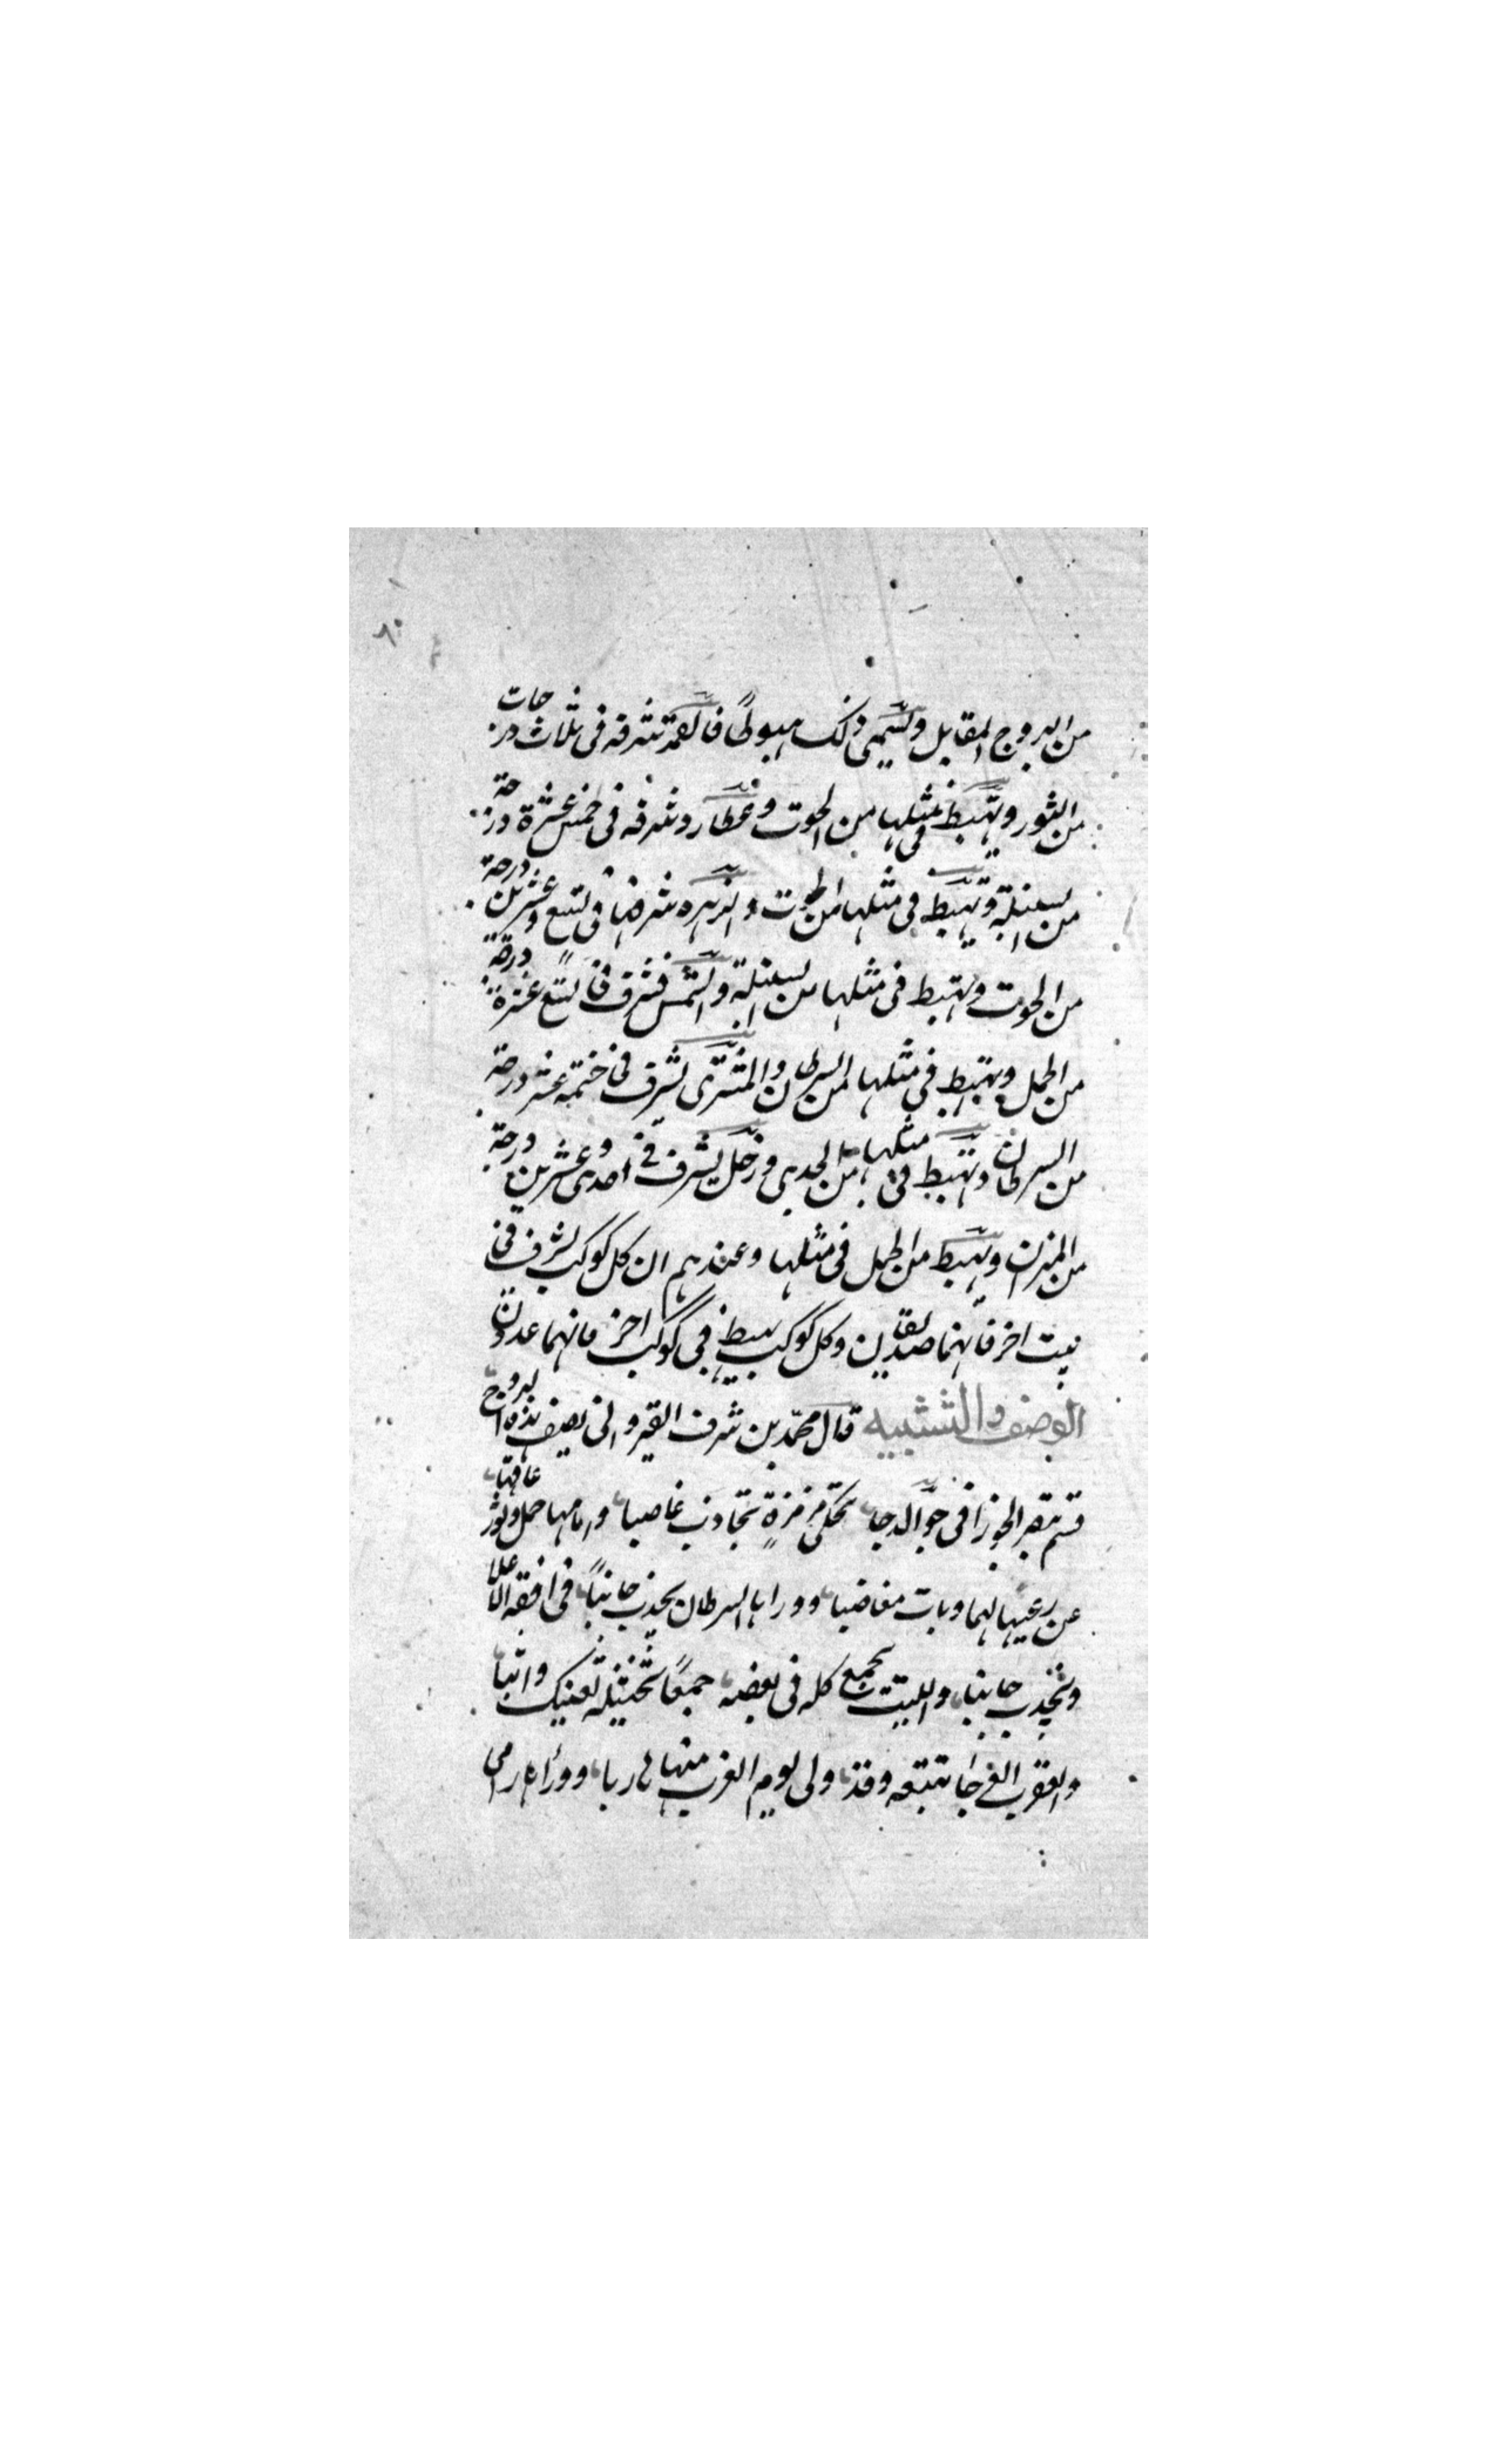 من البروج المقابل ويسمى ذلك هبوطًا فالقمر شرفه فى ثلاث درجات
من الثور ويهبط فى مثلها من الحوت وعطارد شرفه فى خمس عشرة درجة
من السنبلة ويهبط فى مثلها من الحوت والزهرة شرفها فى تسع وعشرين درجة
من الحوت وتهبط فى مثلها من السنبلة والشمس تشرف فى تسع عشرة درجة
من الحمل وتهبط فى مثلها من السرطان والمشترى يشرف فى خمسة عشر درجة
من السرطان ويهبط فى مثلها من الجدى وزحل يشرف فى احدى وعشرين درجة
من الميزان ويهبط من الحمل فى مثلها وعندهم ان كل كوكب يشرف فى
بيت اخر فانهما صديقين وكل كوكب يهبط فى كوكب اخر فانهما عدوان
الوصف والتشبيه قال محمد بن شرف القيروانى يصف هذه البروج
قسم بقبر الجوزا فى جو الدجا تحكى مزمزة تجاذب غاصبا وامامها حمل وثور عاقها
عن رعيها لهما وبات مغاضبا ووراها السرطان يجذب جانبًا فى افقه الاعلا
ويجذب جانبا والليث يجمع كله فى بعضه جمعًا تخيله لعينيك واثبا
والعقرب تتبعه وقد ولى ليوم الغرب منها هاربا ووراء رامى